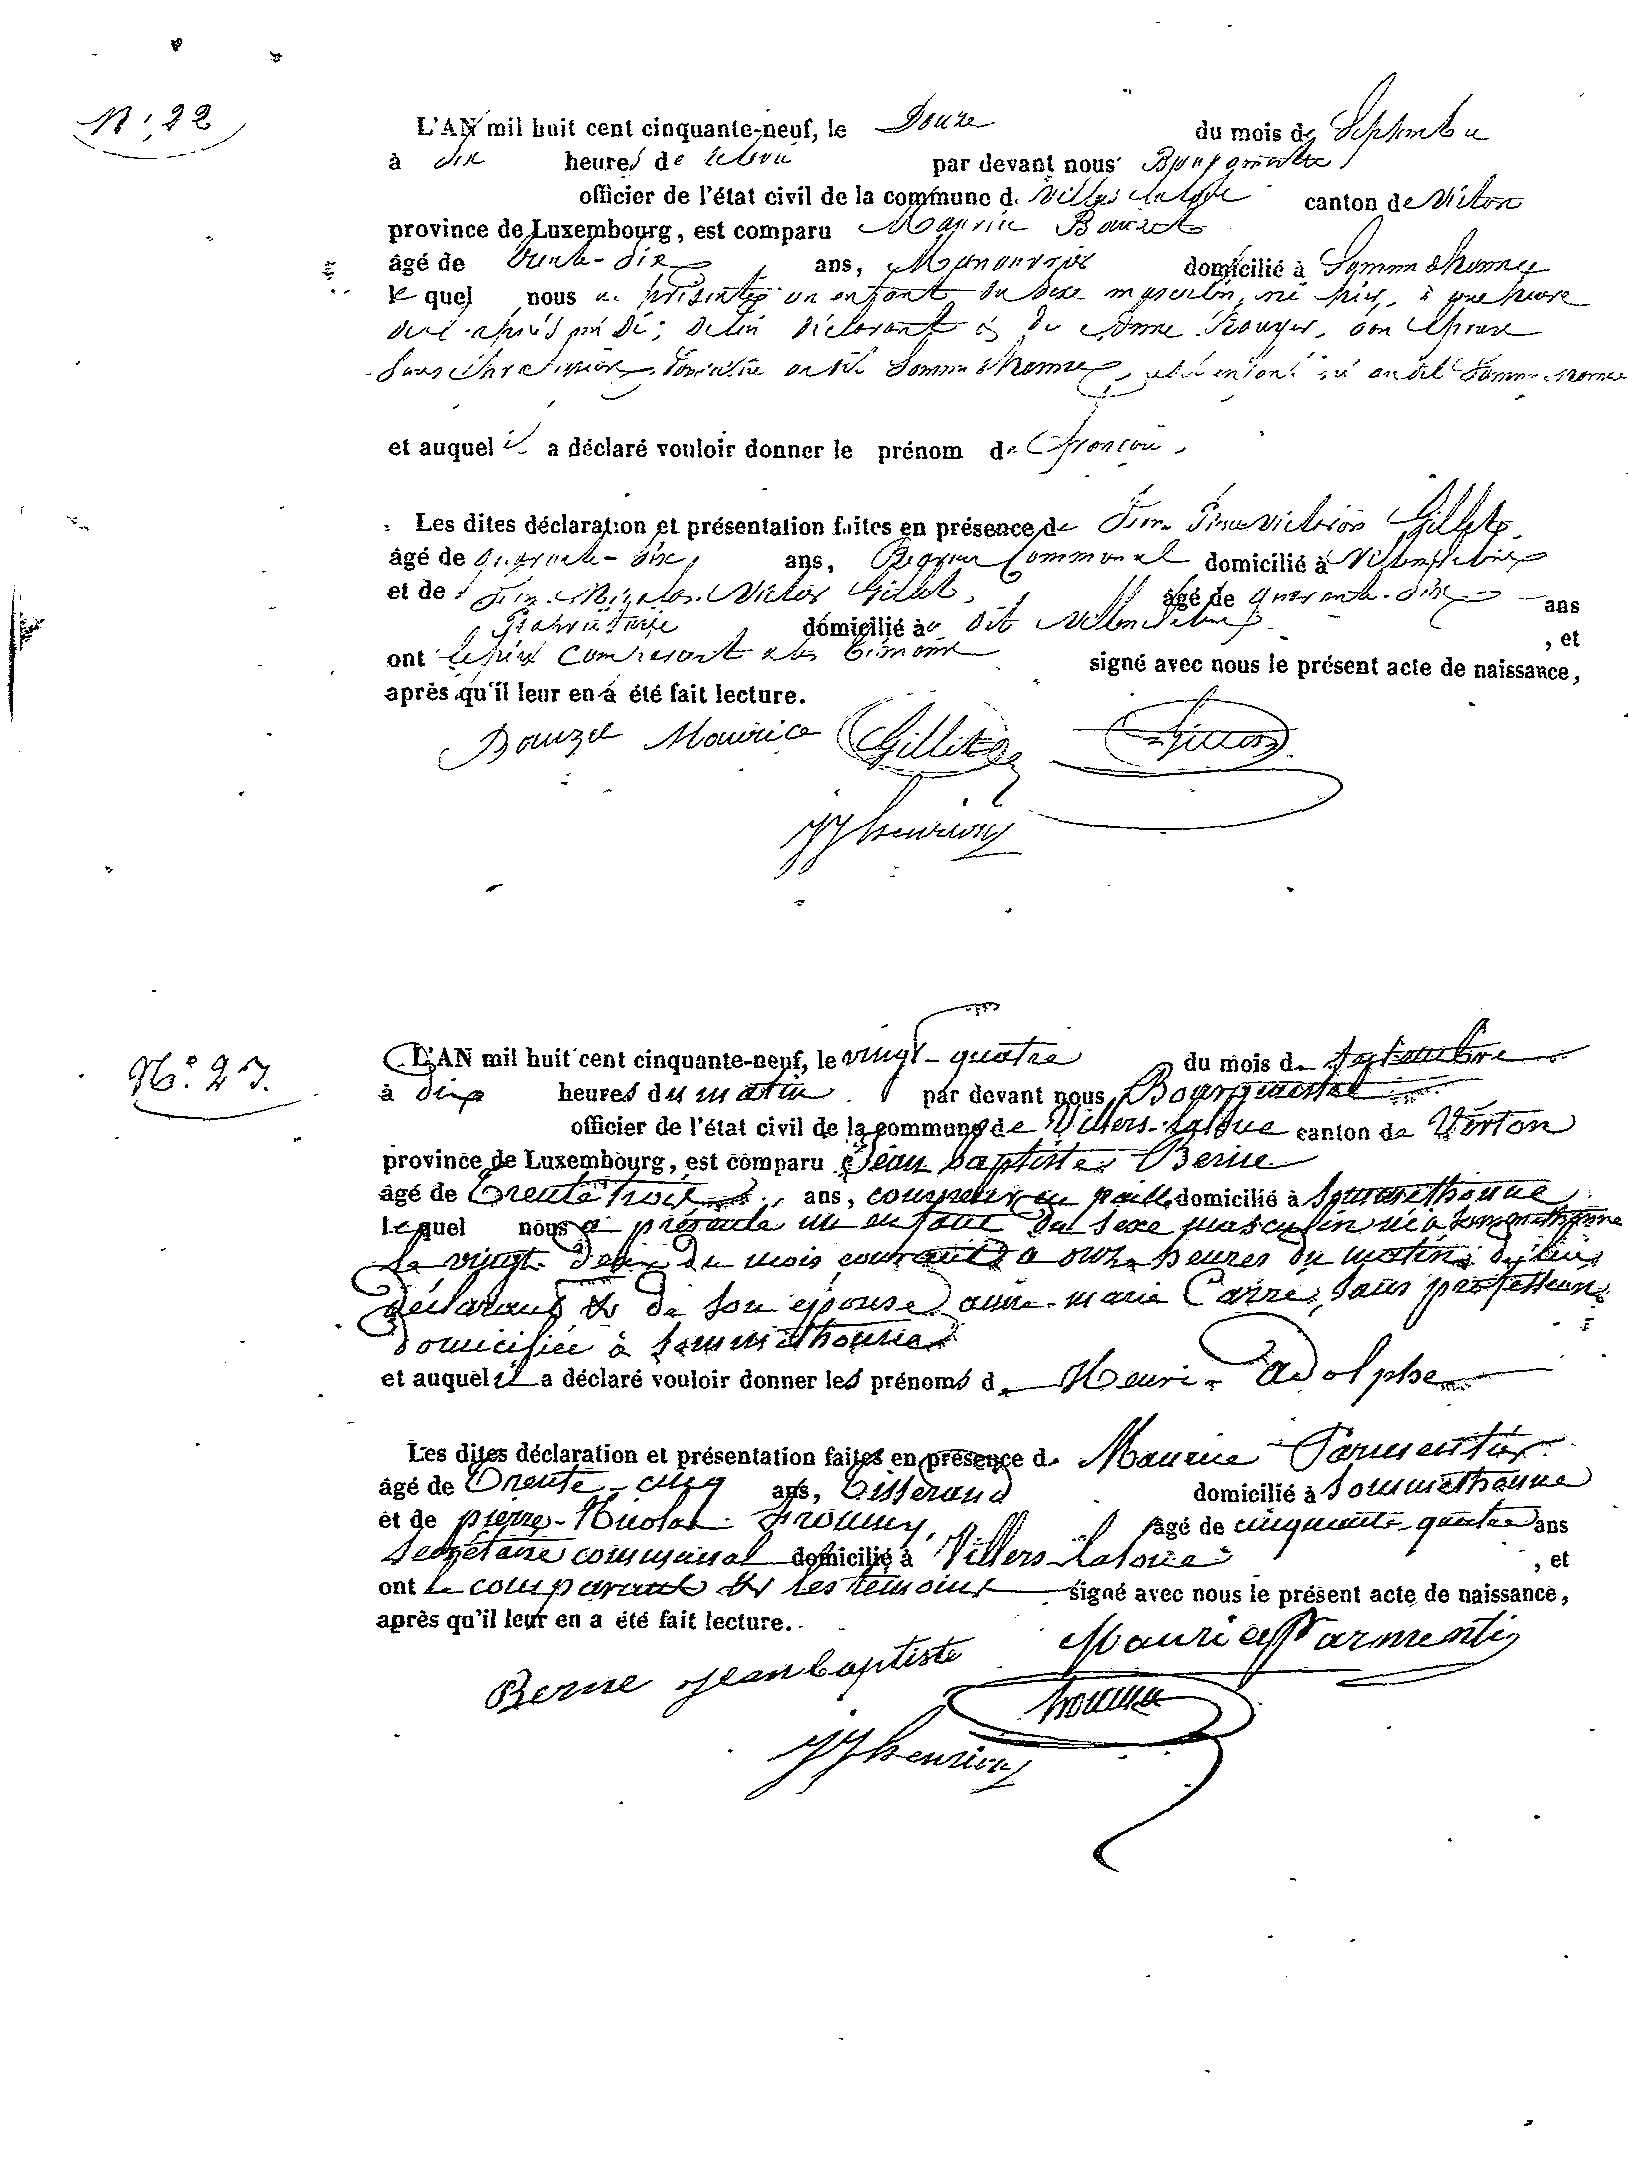 N° 22
L'AN mil huit cent cinquante-neuf, le Douze du mois de Septembre
à dix heures de relevée par devant nous Bourgmestre
officier de l'état civil de la commune de Villers-la-Loue canton de Virton
province de Luxembourg, est comparu Maurice Bouzet
âgé de trente-six ans, Manouvrier domicilié à Sommethonne
le quel nous a présenté un enfant du sexe masculin, né hier, à une heure
après midi, de lui déclarant et de Anne son épouse
domiciliée audit Sommethonne, ledit enfant né audit Sommethonne
et auquel il a déclaré vouloir donner le prénom de François
Les dites déclaration et présentation faites en présence de Jean Victoire Gillet
âgé de quarante-six ans, Receveur Communal domicilié à Villers
et de Jean Nicolas Victor Gillet, âgé de quarante-six ans
Propriétaire domicilié au dit Villers , et
ont le père comparant et les témoins signé avec nous le présent acte de naissance,
après qu'il leur en a été fait lecture.
Bouzet Maurice Gillet
JJhenrion
N° 23.
L'AN mil huit cent cinquante-neuf, le vingt-quatre du mois de Septembre
à dix heures du matin par devant nous Bourgmestre
officier de l'état civil de la commune de Villers-laloue canton de Virton
province de Luxembourg, est comparu Jean baptiste Berne
âgé de Trente trois ans, en paille domicilié à Sommethonne
Lequel nous a présenté un enfant du sexe masculin né à Sommethonne
le vingt deux du mois courant à onze heures du matin, de lui
déclarant & de son épouse anne-marie Carré, sans profession
domiciliée à Sommethonne
et auquel il a déclaré vouloir donner les prénoms d. Henri-Adolphe
Les dites déclaration et présentation faites en présence d. Maurice Parmentier
âgé de Trente-cinq ans, Tisserand domicilié à Sommethonne
et de pierre-Nicolas âgé de cinquante-quatre ans
Secrétaire communal domicilié à Villers-laloue , et
ont le comparant & les témoins signé avec nous le présent acte de naissance,
après qu'il leur en a été fait lecture.
Berne jean baptiste Maurice Parmentier
JJhenrion